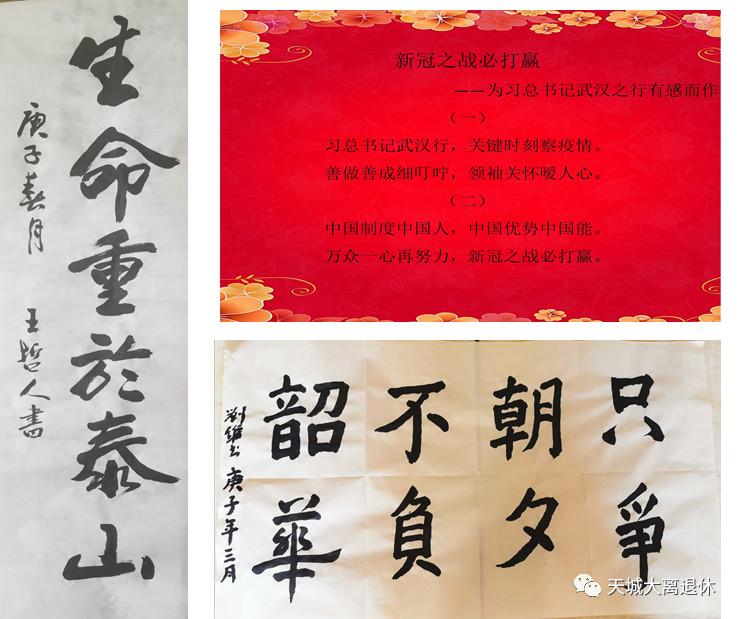 生命重於泰山
庚子春月 王哲人書
新冠之战必打赢
——为习总书记武汉之行有感而作
（一）
习总书记武汉行，关键时刻察疫情。
善做善成细叮咛，领袖关怀暖人心。
（二）
中国制度中国人，中国优势中国能。
万众一心再努力，新冠之战必打赢。
只爭
朝夕
不負
韶華
劉維書 庚子年三月
天城大离退休